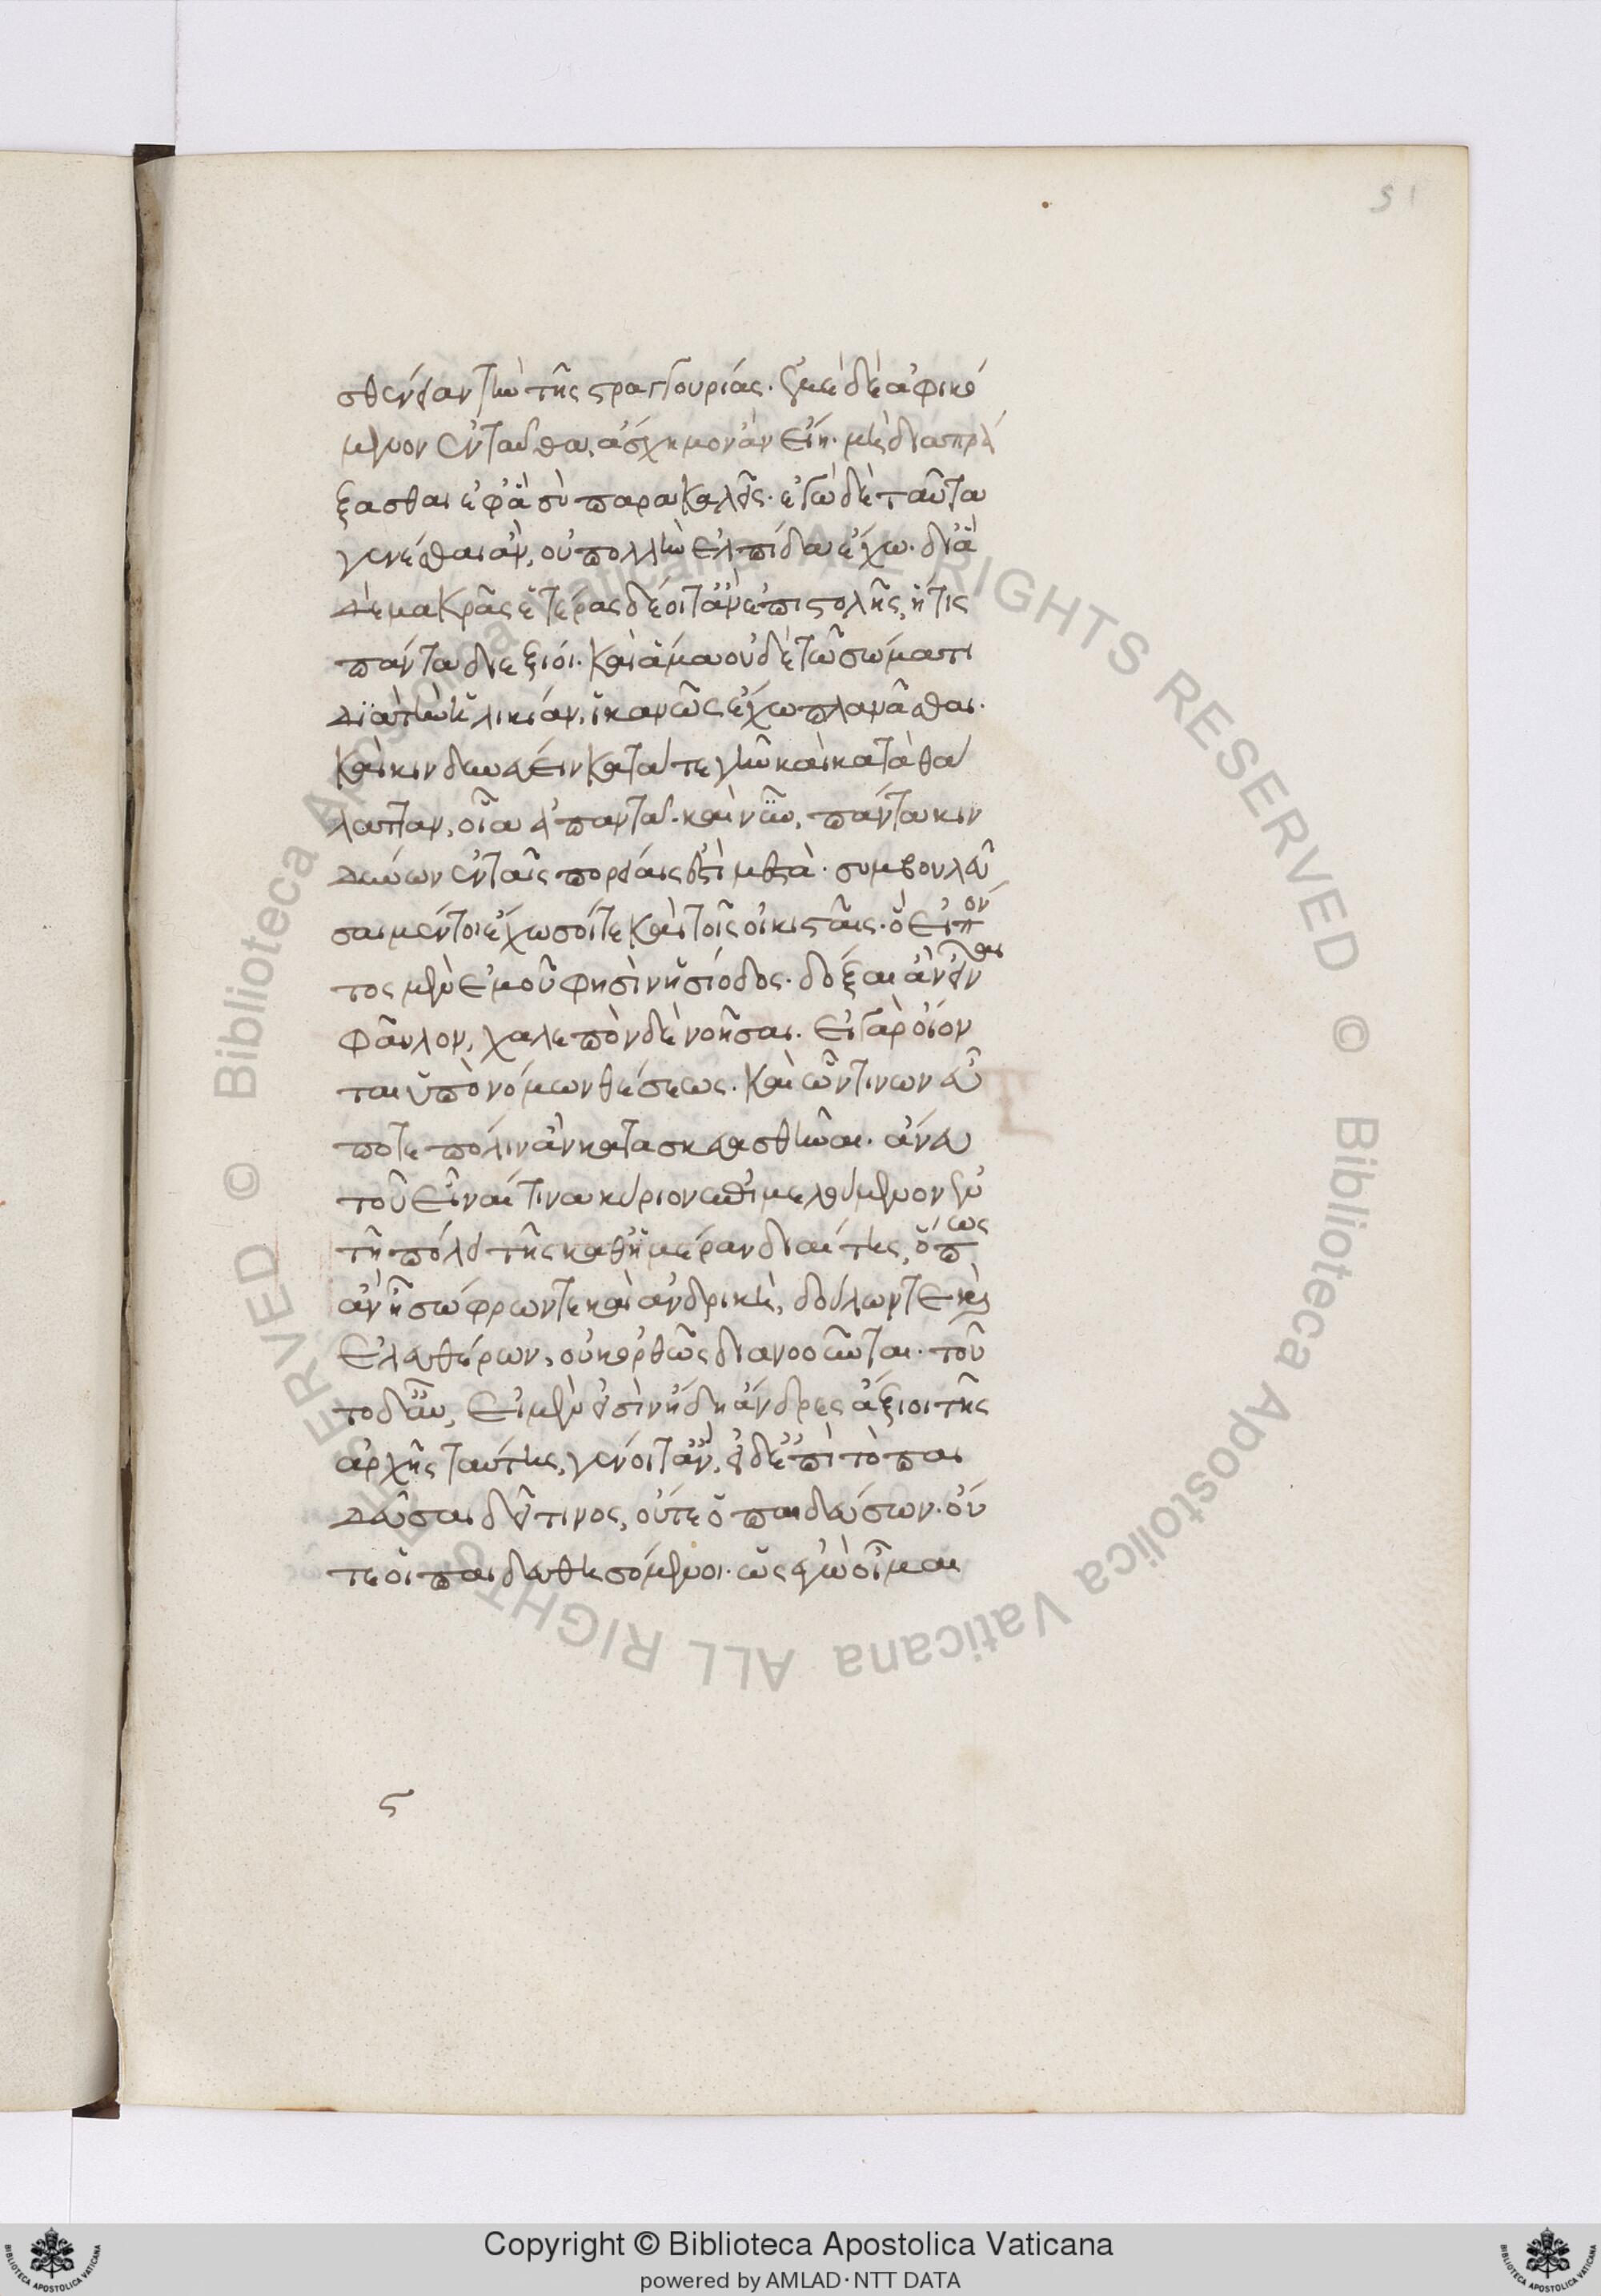 51
σθένειαν τὴν τῆς στραγγουρίας. ἐμὲ δὲ ἀφικό
μενον ἐνταῦθα, ἄσχημον ἂν εἴη. μὴ διαπρά
ξασθαι ἐφ' ἃ σὺ παρακαλεῖς. ἐγὼ δὲ ταῦτα
γενέσθαι ἂν, οὐ πολλὴν ἐλπίδα ἔχω. δι' ἃ
δὲ μακρᾶς ἑτέρας δέοιτ' ἂν ἐπιστολῆς, ἥτις
πάντα διεξιοῖ. καὶ ἅμα οὐδὲ τῷ σώματι
διὰ τὴν ἡλικίαν, ἱκανῶς ἔχω πλανᾶσθαι.
καὶ κινδυνεύειν κατά τε γῆν καὶ κατὰ θά
λατταν, οἷα ἀπαντᾷ. καὶ νῦν, πάντα κιν
δύνων ἐν ταῖς πορείαις ἐστὶ μεστά. συμβουλεῦ
σαι μέντοι ἔχω σοί τε καὶ τοῖς οἰκισταῖς. ὃ εἰπόν
τος μὲν ἐμοῦ φησὶν ἡσίοδος. δόξαι ἂν εἶναι
φαῦλον, χαλεπὸν δὲ νοῆσαι. εἰ γὰρ οἴον
ται ὑπὸ νόμων θέσεως. καὶ ὧν τινων εὖ
ποτε πόλιν ἂν κατασκευασθῆναι. ἄνευ
τοῦ εἶναί τινα κύριον ἐπιμελούμενον ἐν
τῇ πόλει τῆς καθ' ἡμέραν διαίτης, ὅπως
ἂν ᾖ σώφρων τε καὶ ἀνδρικὴ, δούλων τε καὶ
ἐλευθέρων, οὐκ ὀρθῶς διανοοῦνται. τοῦ
το δ' αὖ, εἰ μὲν εἰσὶν ἤδη ἄνδρες ἄξιοι τῆς
ἀρχῆς ταύτης, γένοιτ' ἄν, εἰ δ' ἐπὶ τὸ παι
δεῦσαι δεῖ τινος, οὔτε ὁ παιδεύσων. οὔ
τε οἱ παιδευθησόμενοι. ὡς ἐγὼ οἶμαι
ς
© Biblioteca Apostolica Vaticana ALL RIGHTS RESERVED © Biblioteca Apostolica Vaticana ALL RIGHTS RESERVED
Copyright © Biblioteca Apostolica Vaticana
powered by AMLAD·NTT DATA